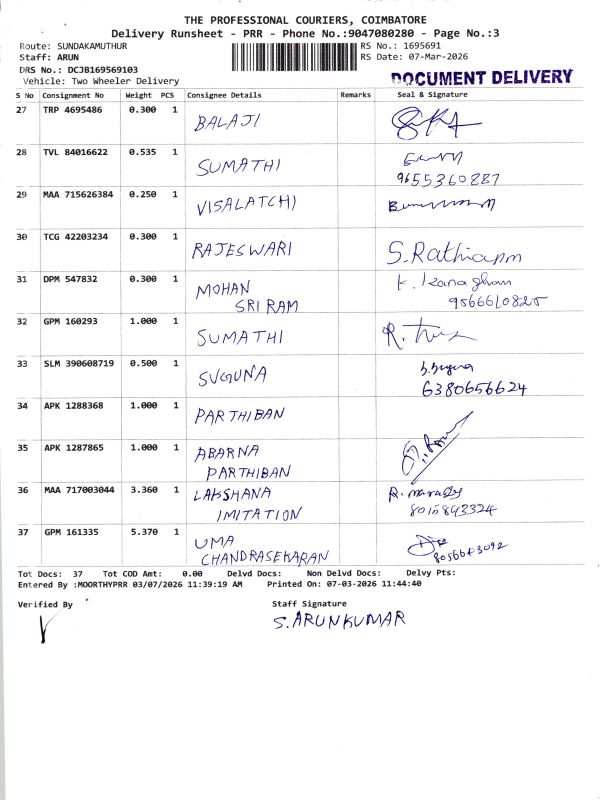 THE PROFESSIONAL COURIERS, COIMBATORE
Delivery Runsheet - PRR - Phone No.:9047080280 - Page No.:3
Route: SUNDAKAMUTHUR RS No.: 1695691
Staff: ARUN RS Date: 07-Mar-2026
DRS No.: DCJB169569103
Vehicle: Two Wheeler Delivery DOCUMENT DELIVERY
S No Consignment No Weight PCS Consignee Details Remarks Seal & Signature
27 TRP 4695486 0.300 1 BALAJI
28 TVL 84016622 0.535 1 SUMATHI
9655360887
29 MAA 715626384 0.250 1 VISALATCHI
30 TCG 42203234 0.300 1 RAJESWARI
31 DPM 547832 0.300 1 MOHAN
SRIRAM 9566610825
32 GPM 160293 1.000 1 SUMATHI
33 SLM 390608719 0.500 1 SUGUNA
6380656624
34 APK 1288368 1.000 1 PARTHIBAN
35 APK 1287865 1.000 1 ABARNA
PARTHIBAN
36 MAA 717003044 3.360 1 LAKSHANA
IMITATION
37 GPM 161335 5.370 1 UMA
CHANDRASEKARAN
Tot Docs: 37 Tot COD Amt: 0.00 Delvd Docs: Non Delvd Docs: Delvy Pts:
Entered By :MOORTHYPRR 03/07/2026 11:39:19 AM Printed On: 07-03-2026 11:44:40
Verified By Staff Signature
S. ARUNKUMAR